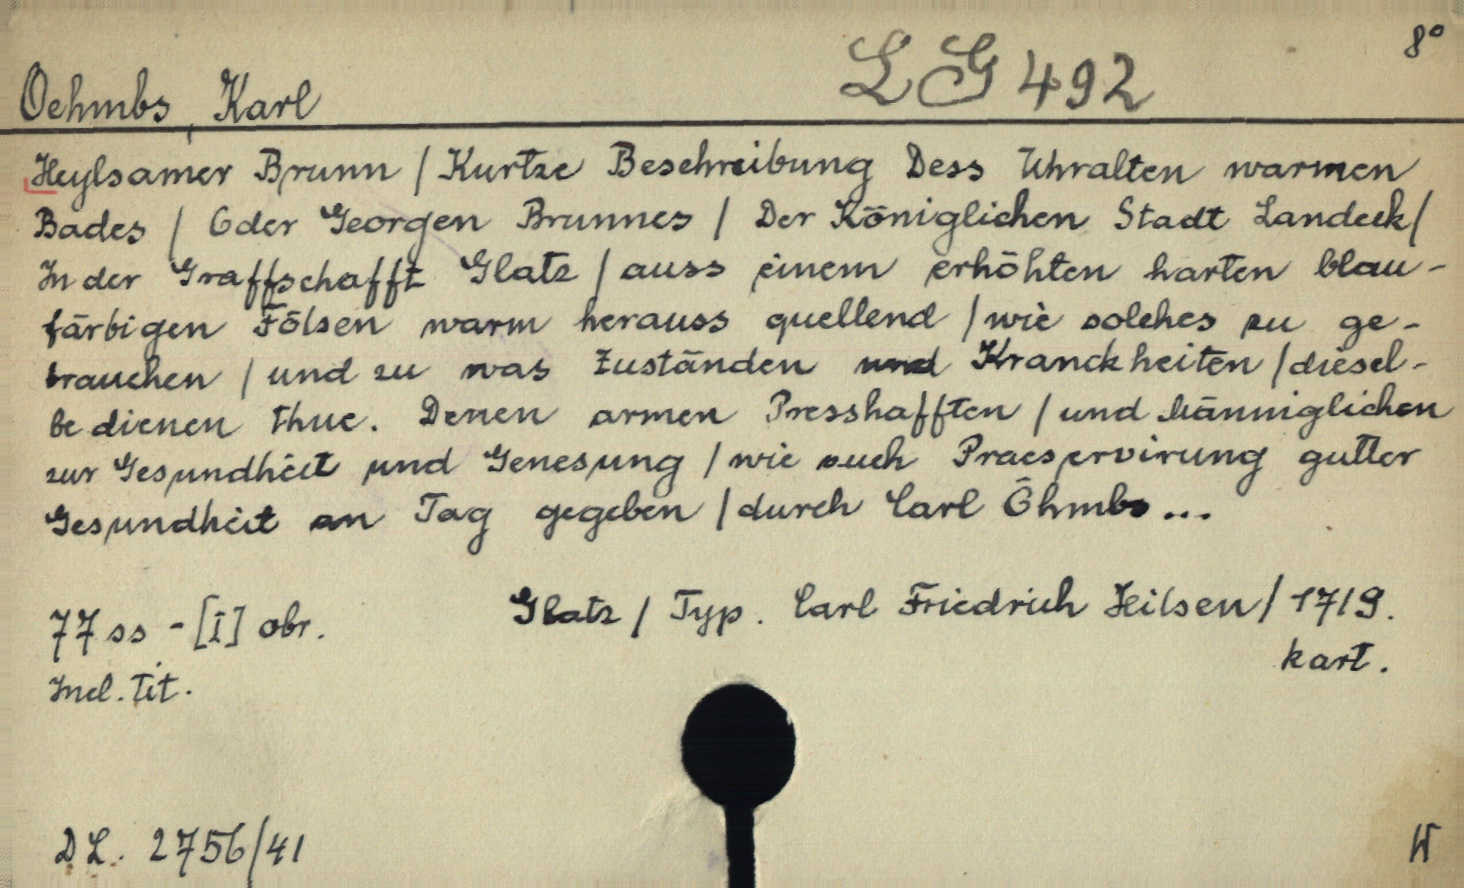 8°
LG 492
Oehmbs, Karl
Heylsamer Brunn / Kurtze Beschreibung Dess Uhralten warmen
Bades / Oder Georgen Brunnes / Der Königlichen Stadt Landeck /
In der Graffschafft Glatz / auss einem erhöhten harten blau-
färbigen Fölsen warm herauss quellend / wie solches zu ge-
brauchen / und zu was Zuständen und Kranckheiten / diesel-
be dienen thue. Denen armen Presshafften / und Männiglichen
zur Gesundheit und Genesung / wie auch Praeservirung gutter
Gesundheit an Tag gegeben / durch Carl Öhmbs ...
Glatz / Typ. Carl Friedrich Heilsen / 1719.
77 ss - [I] obr.
kart.
Incl. tit.
DL. 2756/41
W